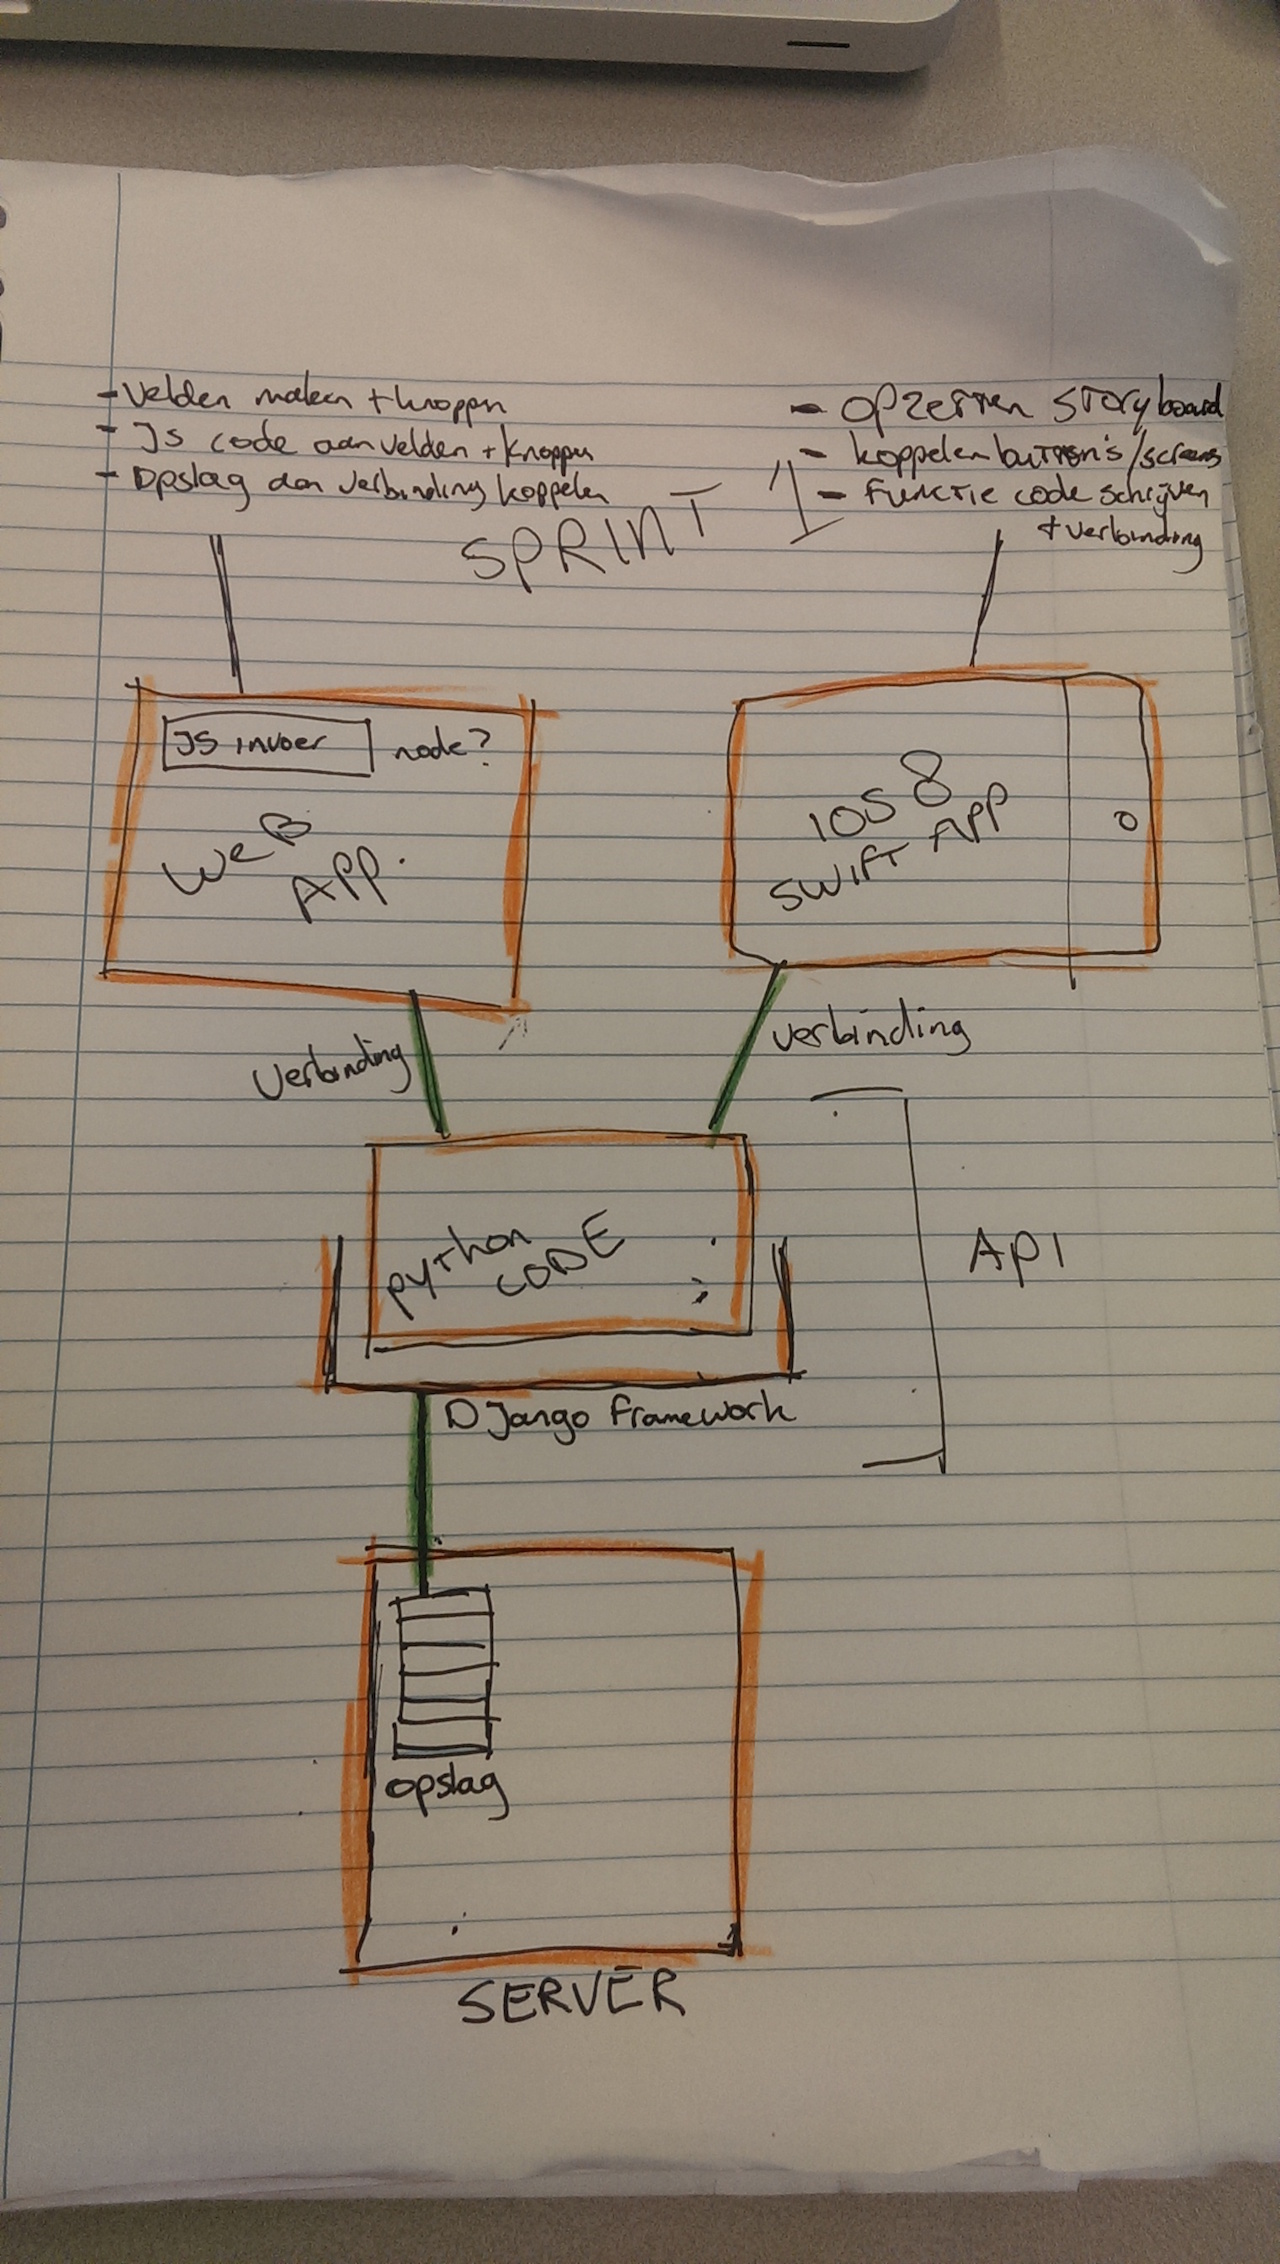 - Velden maken + knoppen
- JS code aan velden + knoppen
- Opslag aan verbinding koppelen
- opzetten storyboard
- koppelen button's/screens
- functie code schrijven
+ verbinding
SPRINT 1
JS invoer node?
WeB
App.
iOS 8
SWIFT App
Verbinding
verbinding
python
CODE
API
Django framework
opslag
SERVER